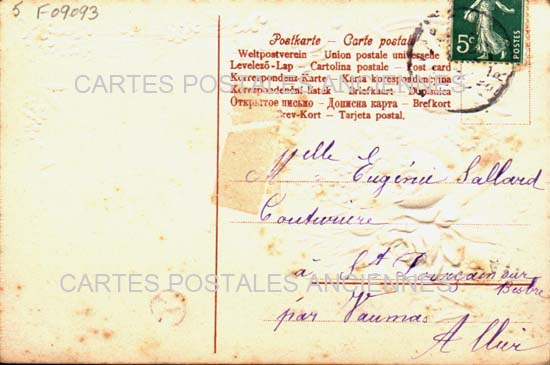 5 F09093
Postkarte – Carte postale
Weltpostverein – Union postale universelle
Levelező-Lap – Cartolina postale – Post card
Korrespondenz-Karte – Karta korespondencyjna
Korespondenční lístek – Briefkaart – Dopisnica
Открытое письмо – Дописна карта – Brefkort
Brev-Kort – Tarjeta postal.
5c POSTES
CARTES POSTALES ANCIENNES
Melle Eugénie Sallard
Couturière
à St Pourçain sur
Besbre
CARTES POSTALES ANCIENNES
par Vaumas
Allier